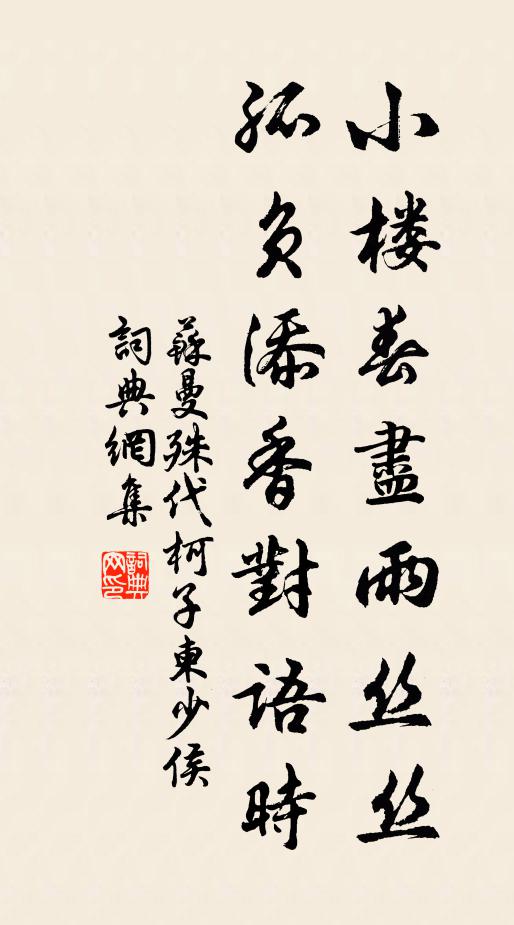 小楼春盡雨丝丝
孤负添香對語時
蘇曼殊代柯子東少侯
詞典網集
詞典网印